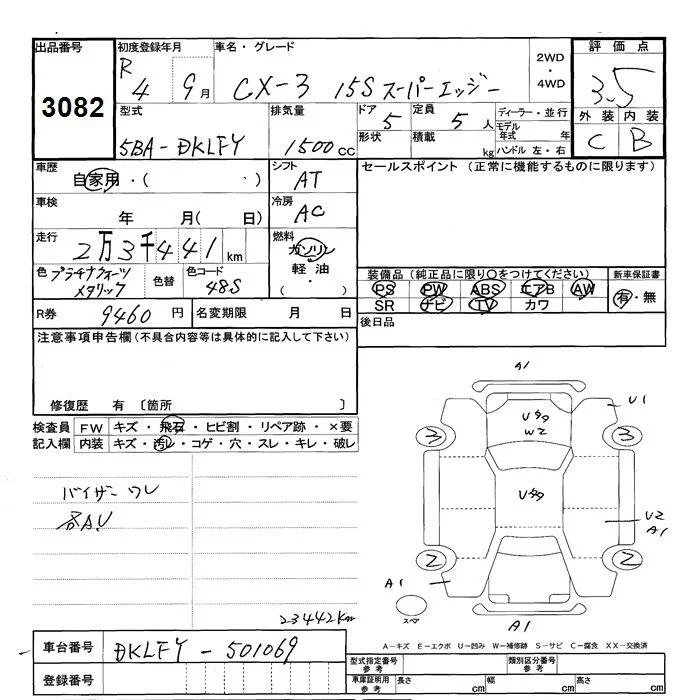 出品番号 初度登録年月 車名・グレード 評価点
3082 R 4 9月 CX-3 15S スーパーエッジー 2WD・4WD 3.5
型式 排気量 ドア 定員 ディーラー・並行 外装 内装
5BA-DKLFY 1500cc 5 5人 モデル年式 年 C B
形状 積載 kg ハンドル 左・右
車歴 自家用・( ・) シフト AT セールスポイント (正常に機能するものに限ります)
車検 年 月( 日) 冷房 AC
走行 2万3千441km 燃料 ガソリン 軽油・( )
色 プラチナクォーツメタリック 色替 色コード 48S 装備品(純正品に限り○をつけてください) 新車保証書
PS PW ABS エアB AW 有・無
R券 9460円 名変期限 月 日 SR ナビ TV カワ
後日品
注意事項申告欄(不具合内容等は具体的に記入して下さい)
修復歴 有 〔箇所 〕
検査員 FW キズ・飛石・ヒビ割・リペア跡・×要
記入欄 内装 キズ・汚レ・コゲ・穴・スレ・キレ・破レ
バイザーワレ
各AU
23442Km
A1
U多 W2 U1
3 3
U多
U2 A1
2 2
A1
スペア A1
A-キズ E-エクボ U-凹み W-補修跡 S-サビ C-腐食 XX-交換済
車台番号 DKLFY-501069
登録番号
型式指定番号 参考 類別区分番号 参考
車庫証明用 参考 長さ cm 幅 cm 高さ cm